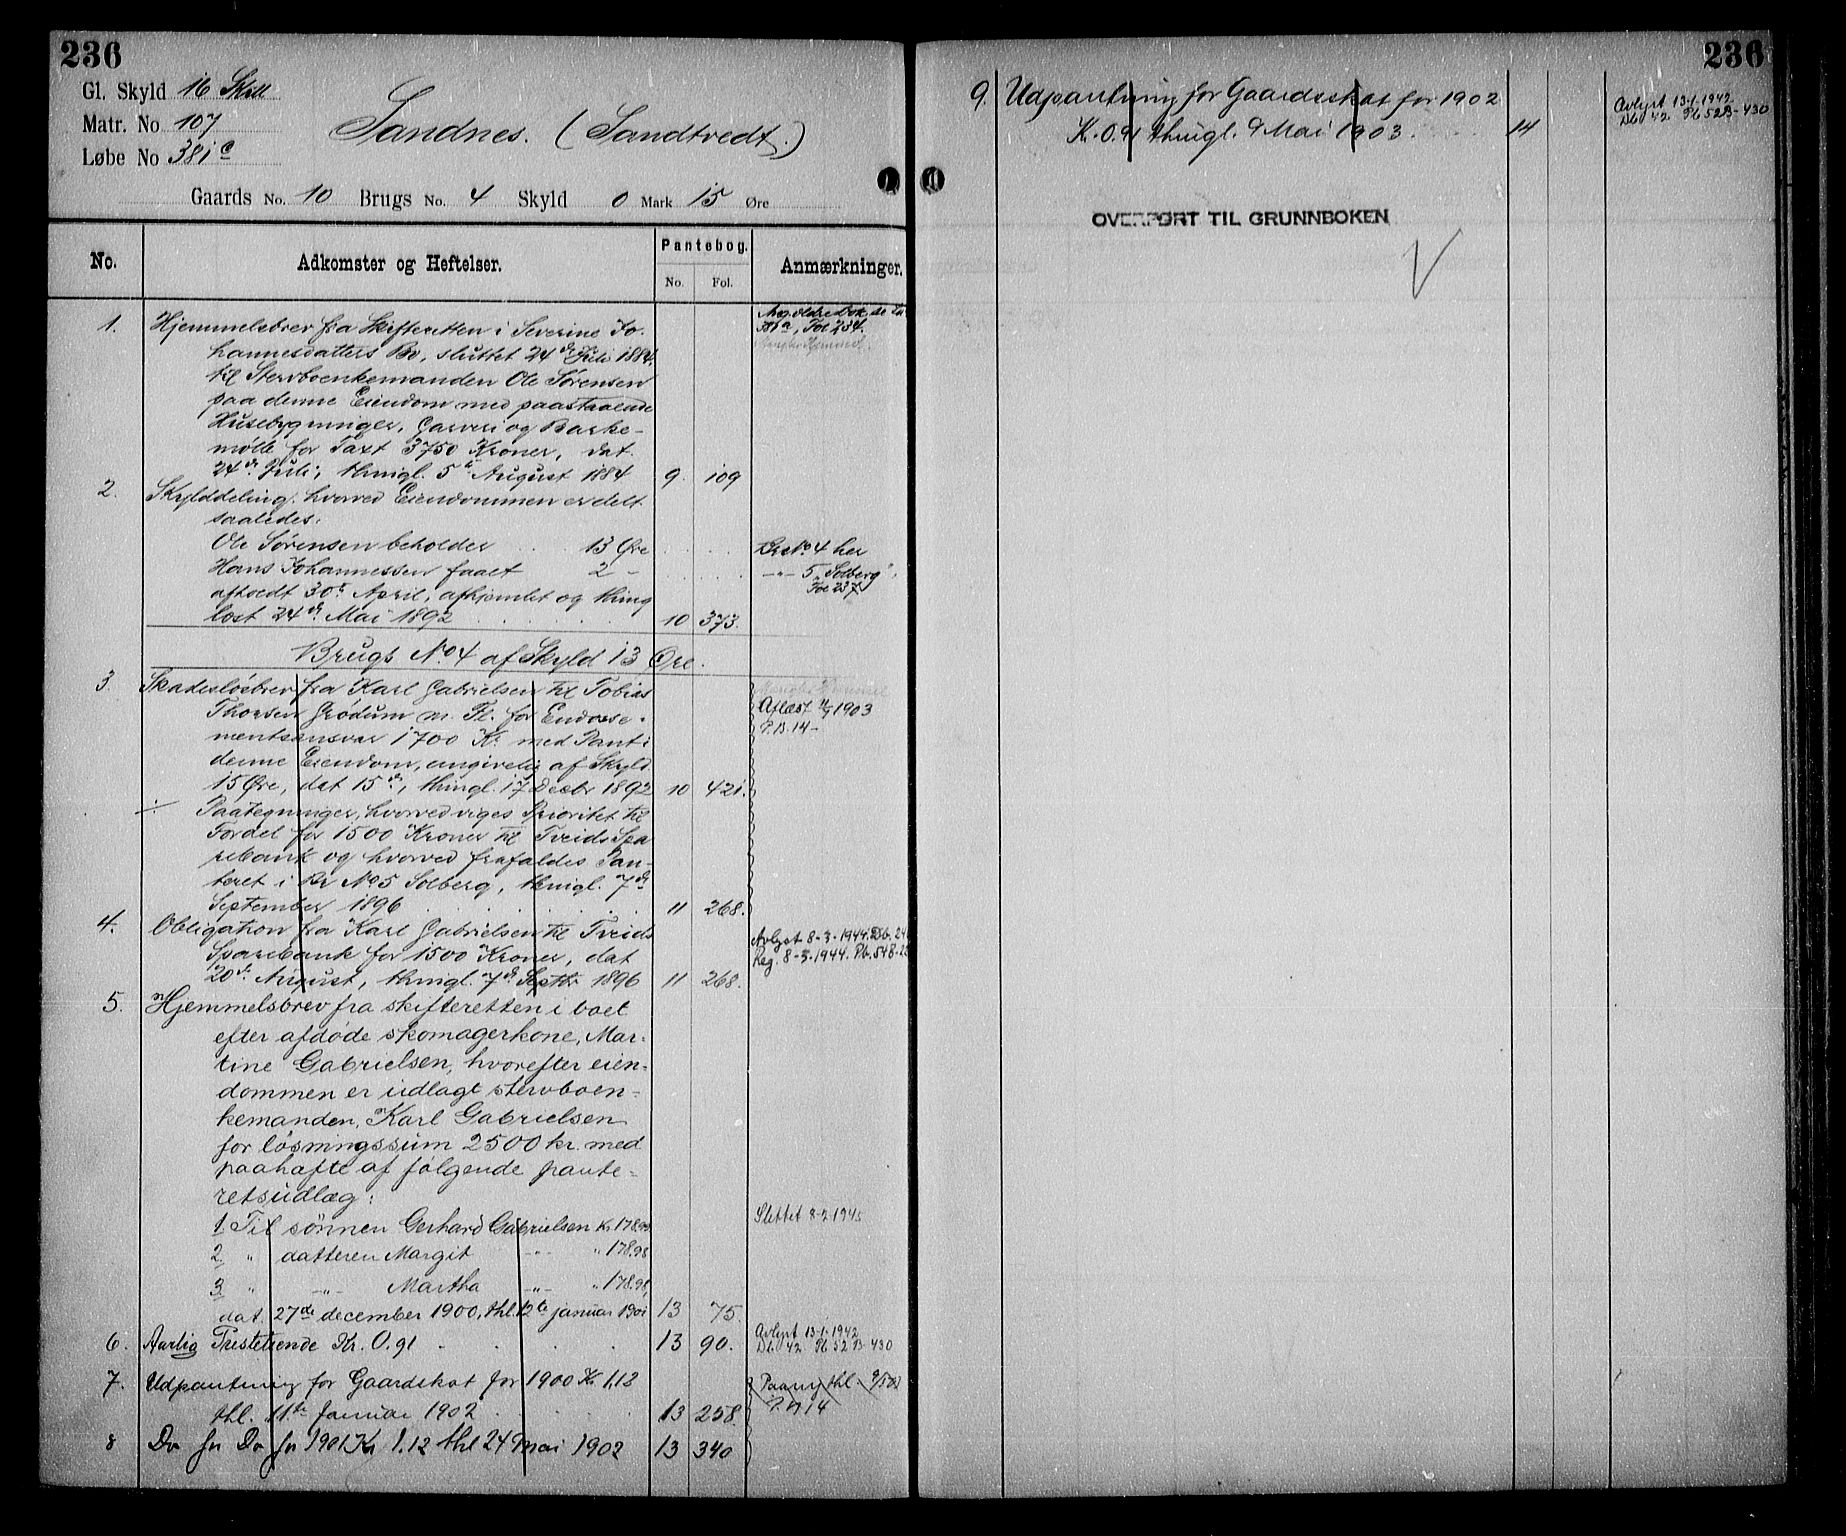 236
Gl. Skyld 16 Skill
Matr. No 107
Løbe No 381c
Sandnes. (Sandtvedt.)
Gaards No. 10 Brugs No. 4 Skyld 0 Mark 15 Øre
No. Adkomster og Heftelser. Pantebog. No. Fol. Anmærkninger.
1. Hjemmelsbrev fra Skifteretten i Severine Jo-
hannesdatters Bo, sluttet 24de Juli 1884.
til Stervboenkemanden Ole Sørensen
paa denne Eiendom med paastaaende
Husebygninger, Garveri og Barke-
mølle for Taxt 3750 Kroner, dat.
24de Juli, thingl. 5te August 1884 9. 109
Ang. ældre Dok. se
381a, Fol 234.
Mangler Hjemmel.
2. Skylddeling, hvorved Eiendommen er delt
saaledes:
Ole Sørensen beholder 13 Øre Br. No. 4 her
Hans Johannessen faaet 2 - -"- 5 "Solberg"
Fol 237
afholdt 30te April, afhjemlet og thing
lost 24de Mai 1892 10 373.
Brugs No. 4 af Skyld 13 Øre.
3. Skadesløsbrev fra Karl Gabrielsen til Tobias
Thorsen Grødum m. Fl. for Endosse-
mentsansvar 1700 Kr. med Pant i
denne Eiendom, angivelig af Skyld
15 Øre, dat 15de, thingl. 17 Decbr 1892 10 421.
Mangler Hjemmel
Aflæst 1903
P.B. 14 -
÷ Paategninger, hvorved viges Prioritet til
Fordel for 1500 Kroner til Tveids Spa
rebank og hvorved frafaldes Pan-
teret i Br No 5 Solberg, thingl. 7de
September 1896 11 268.
4. Obligation fra Karl Gabrielsen til Tveids
Sparebank for 1500 Kroner, dat
20de August, thingl. 7de Septbr 1896 11 268.
Avlyst 8-3-1944. Db. 24
Reg. 8-3-1944. Pb. 548-
5. Hjemmelsbrev fra skifteretten i boet
efter afdøde skomagerkone, Mar-
tine Gabrielsen, hvorefter eien-
dommen er udlagt stervboen-
kemanden, Karl Gabrielsen
for løsningssum 2500 kr. med
paahefte af følgende pante-
retsudlæg:
1. Til sønnen Gerhard Gabrielsen Kr. 178.98 Slettet 8-2 1945
2. " datteren Margit -"- " 178.98
3. " -"- Martha -"- " 178.98
dat. 27de december 1900, thl. 12te januar 1901 13 75.
6. Aarlig Prestetiende Kr. 0.91 13 90. Avlyst 13-1-1942
Db. 42 Pb 52 B-430
7. Udpantning for Gaardskat for 1900 Kr 1,12
thl. 11te Januar 1902 13 258.
Paany thl. 9/5 03
P.B 14
8 Do for Do for 1901 Kr 1.12 thl 24 Mai 1902 13 340
236
9. Udpantning for Gaardsskat for 1902
K. 0.91 thingl. 9 Mai 1903. 14
Avlyst 13-1-1942
Db 42 Pb 52B-430
OVERFØRT TIL GRUNNBOKEN